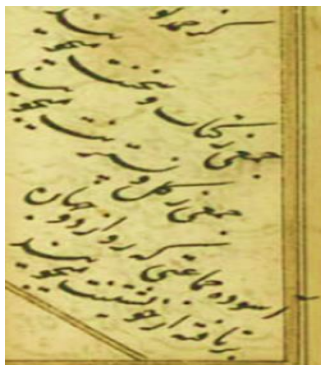 میجویند
جمعی ز کتاب و سخنت میجویند
جمعی ز گل و نسترنت میجویند
آسوده جماعتی که رو از دو جهان
برتافته از خویشتنت میجویند